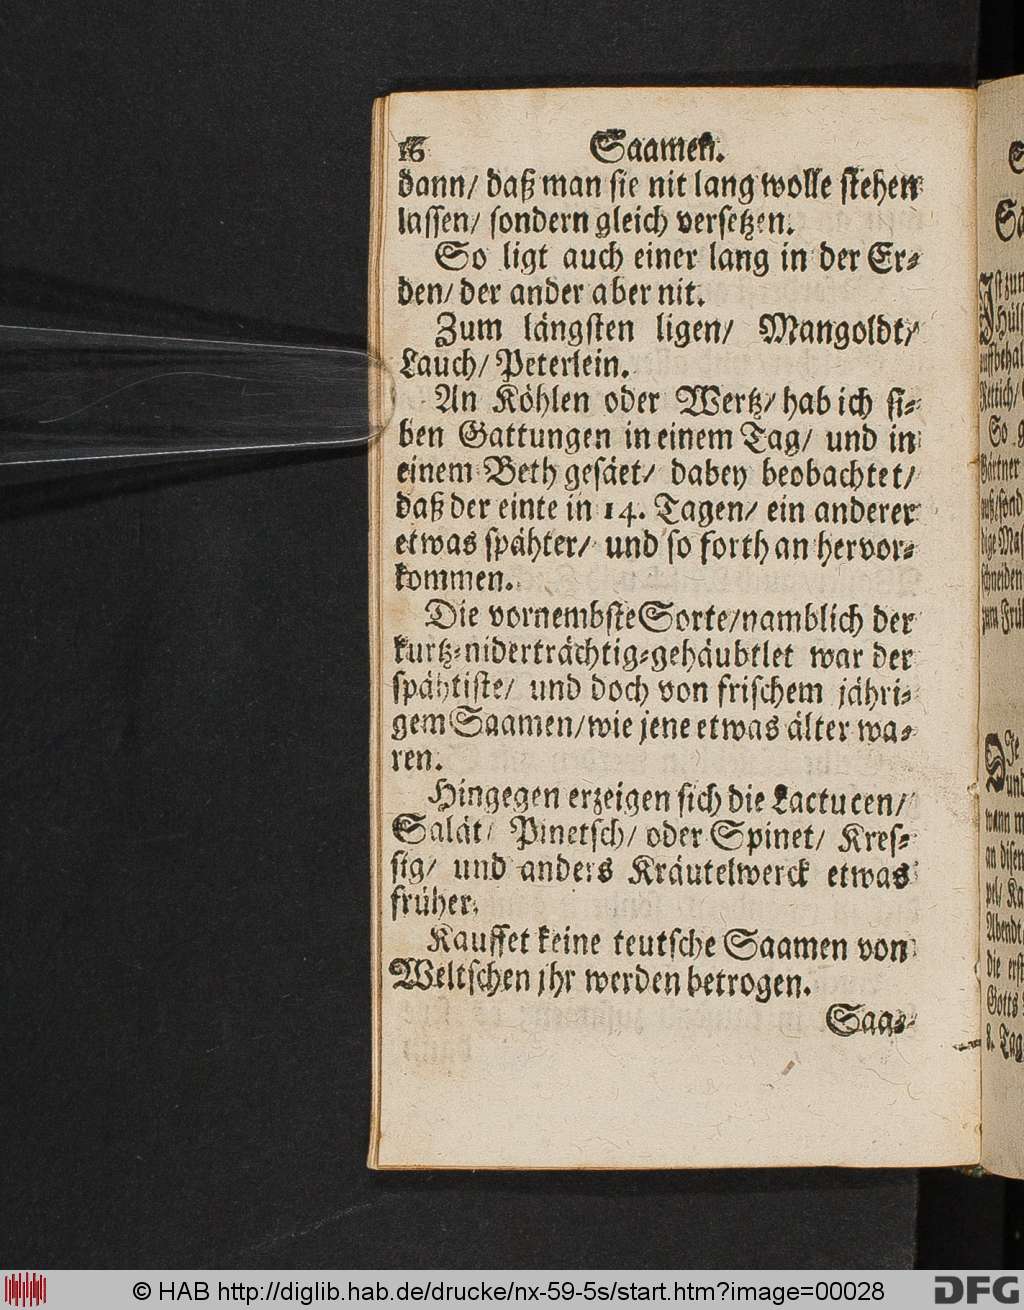 16 Saamen.
dann/ daß man sie nit lang wolle stehen
lassen/ sondern gleich versetzen.
So ligt auch einer lang in der Er⸗
den/ der ander aber nit.
Zum längsten ligen/ Mangoldt/
Lauch/ Peterlein.
An Köhlen oder Wertz/ hab ich si⸗
ben Gattungen in einem Tag/ und in
einem Beth gesäet/ dabey beobachtet/
daß der einte in 14. Tagen/ ein anderer
etwas spähter/ und so forth an hervor⸗
kommen.
Die vornembste Sorte/ namblich der
kurtz⸗niderträchtig⸗gehäubtlet war der
spähtiste/ und doch von frischem jähri⸗
gem Saamen/ wie jene etwas älter wa⸗
ren.
Hingegen erzeigen sich die Lactucen/
Salät/ Pinetsch/ oder Spinet/ Kres⸗
sig/ und anders Kräutelwerck etwas
früher.
Kauffet keine teutsche Saamen von
Weltschen jhr werden betrogen.
Saa⸗
Ist zum
Hüls
auffbehal
Rettich/
So g
Gärtner
schneiden
zum Frü
Die
wann m
an disen
Abendt
die erst
Gotts
8. Tag
© HAB http://diglib.hab.de/drucke/nx-59-5s/start.htm?image=00028
DFG